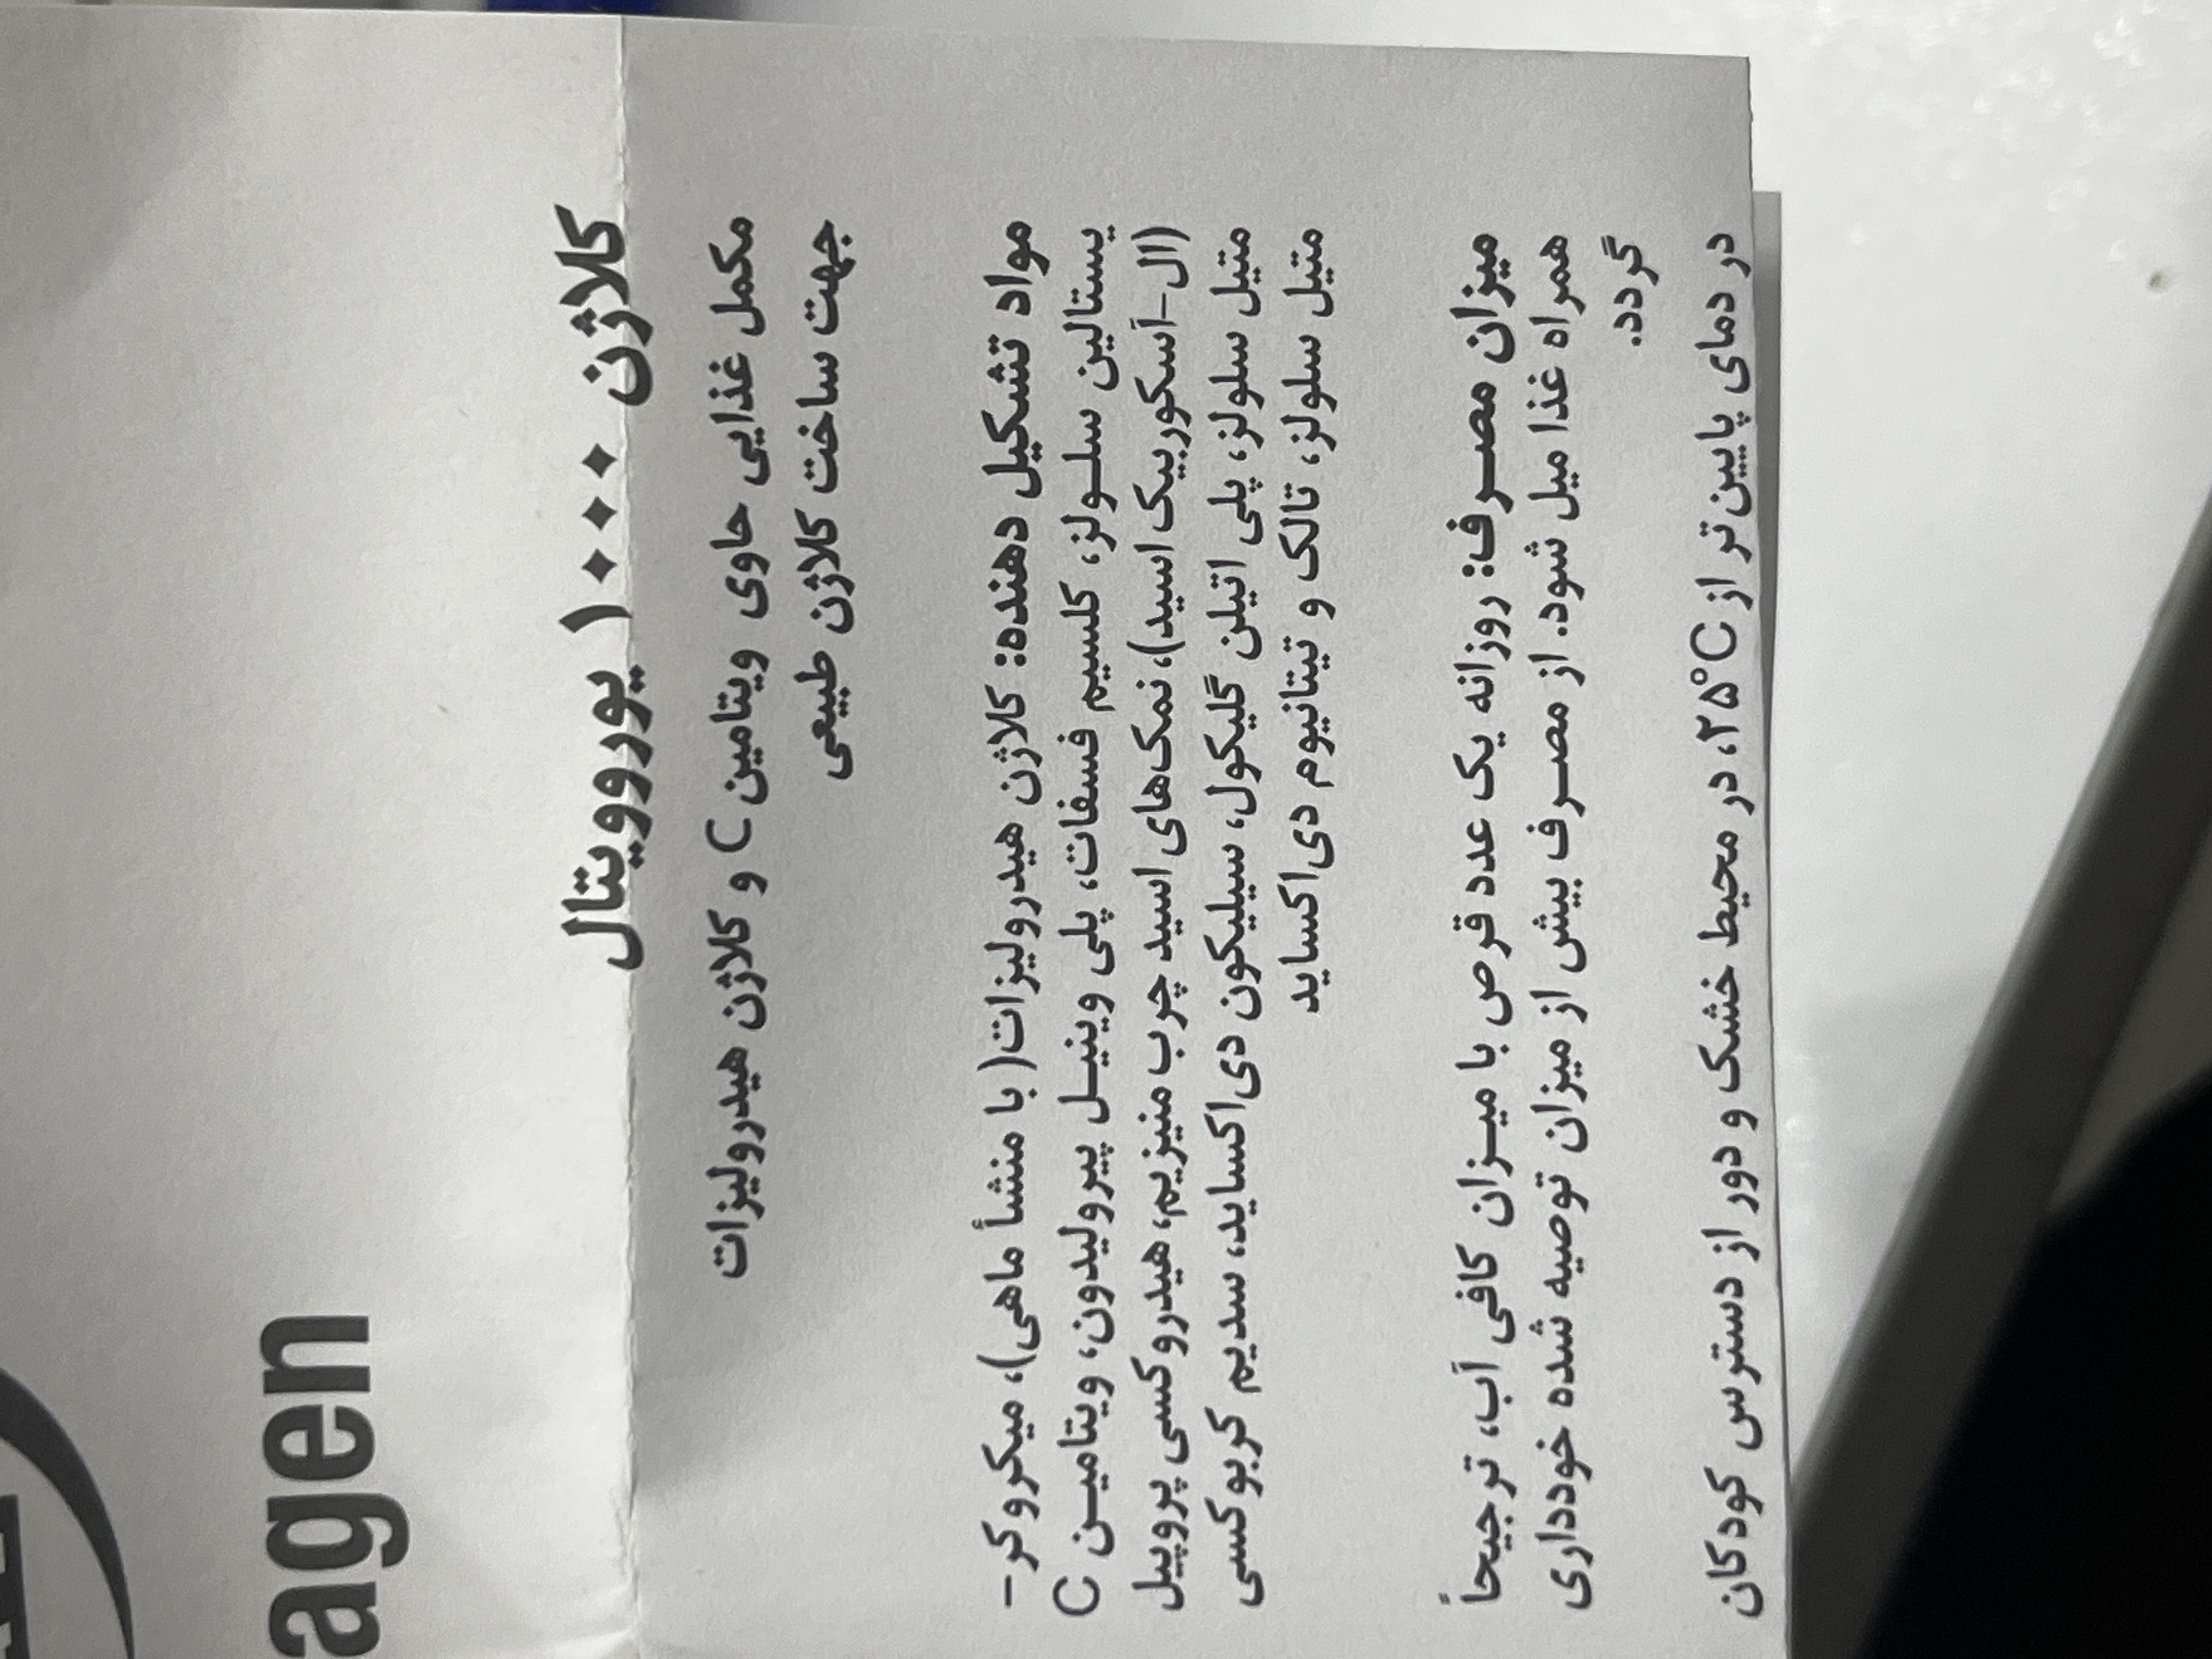 agen
کلاژن ۱۰۰۰ یوروویتال
مکمل غذایی حاوی ویتامین C و کلاژن هیدرولیزات
جهت ساخت کلاژن طبیعی
مواد تشکیل دهنده: کلاژن هیدرولیزات( با منشأ ماهی)، میکروکر-
یستالین سلولز، کلسیم فسفات، پلی وینیل پیرولیدون، ویتامین C
(ال-آسکوربیک اسید)، نمک‌های اسید چرب منیزیم، هیدروکسی پروپیل
متیل سلولز، پلی اتیلن گلیکول، سیلیکون دی‌اکساید، سدیم کربوکسی
متیل سلولز، تالک و تیتانیوم دی‌اکساید
میزان مصرف: روزانه یک عدد قرص با میزان کافی آب، ترجیحاً
همراه غذا میل شود. از مصرف بیش از میزان توصیه شده خودداری
گردد.
در دمای پایین‌تر از ۲۵°C، در محیط خشک و دور از دسترس کودکان